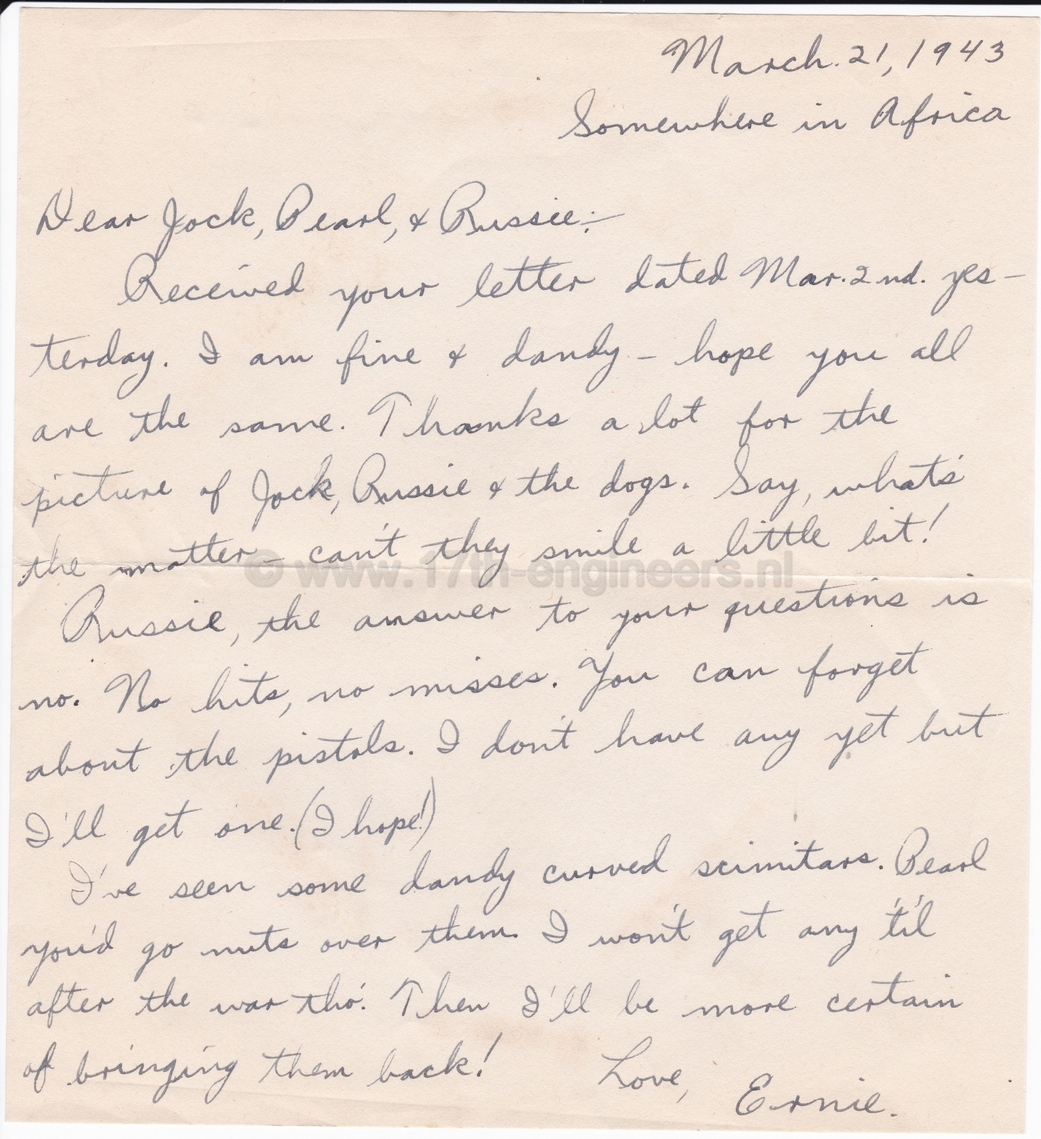 March 21, 1943
Somewhere in Africa
Dear Jock, Pearl, & Russie:—
Received your letter dated Mar. 2nd. yes-
terday. I am fine & dandy – hope you all
are the same. Thanks a lot for the
picture of Jock, Russie & the dogs. Say, what's
the matter – can't they smile a little bit!
© www.17th-engineers.nl
Russie, the answer to your questions is
no. No hits, no misses. You can forget
about the pistols. I don't have any yet but
I'll get one. (I hope!)
I've seen some dandy curved scimitars. Pearl
you'd go nuts over them. I won't get any 'til
after the war tho'. Then I'll be more certain
of bringing them back!
Love,
Ernie.